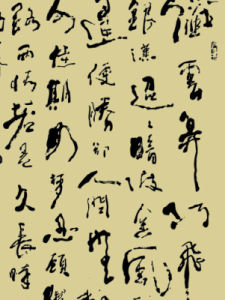 纖雲弄巧飛
銀漢迢迢暗度金風
逢便勝卻人間無
佳期如夢忍顧
路兩情若是久長時